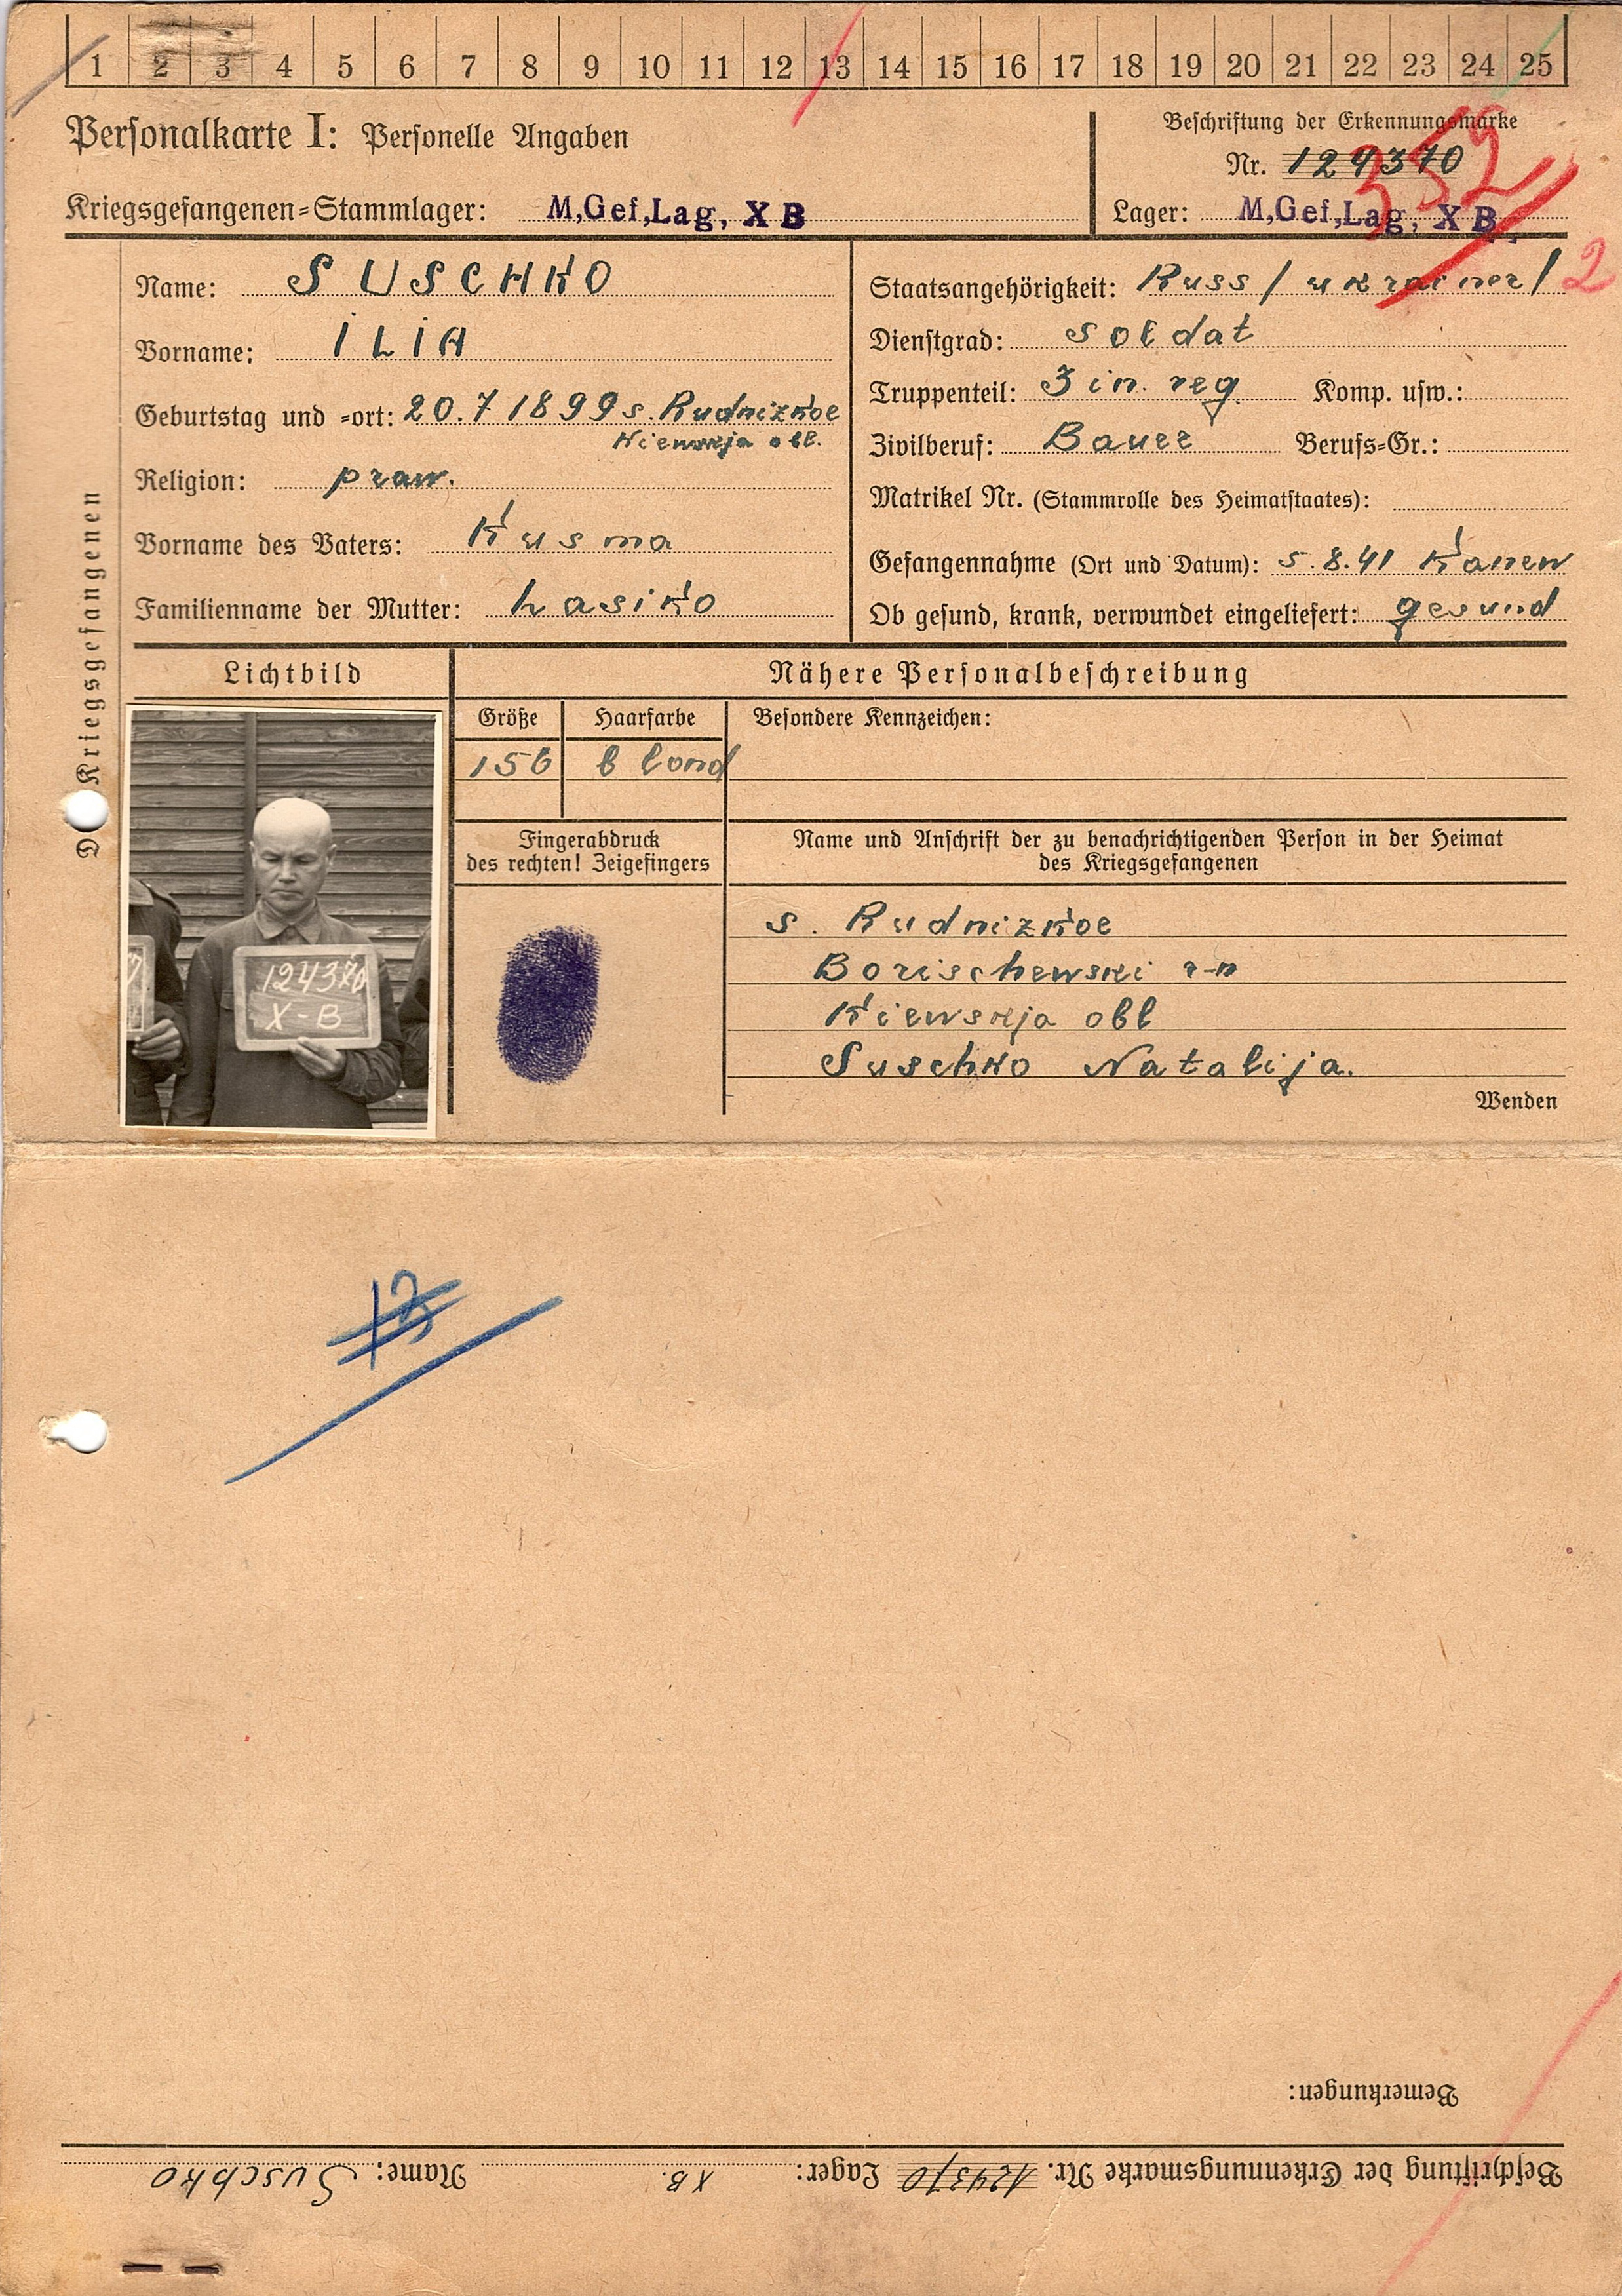 1 2 3 4 5 6 7 8 9 10 11 12 13 14 15 16 17 18 19 20 21 22 23 24 25
Personalkarte I: Personelle Angaben
Kriegsgefangenen-Stammlager: M,Gef,Lag, X B
Beschriftung der Erkennungsmarke
Nr. 124370
Lager: M,Gef,Lag, X B
352
2
Des Kriegsgefangenen
Name: SUSCHKO
Vorname: ILIA
Geburtstag und -ort: 20.7 1899 s. Rudnizkoe
Kiewskja obl.
Religion: praw.
Vorname des Vaters: Kusma
Familienname der Mutter: Lasiko
Staatsangehörigkeit: Russ / ukrainer /
Dienstgrad: Soldat
Truppenteil: 3 in. reg. Komp. usw.:
Zivilberuf: Bauer Berufs-Gr.:
Matrikel Nr. (Stammrolle des Heimatstaates):
Gefangennahme (Ort und Datum): 5.8.41 Kanew
Ob gesund, krank, verwundet eingeliefert: gesund
Lichtbild
Nähere Personalbeschreibung
Größe Haarfarbe Besondere Kennzeichen:
156 blond
Fingerabdruck
des rechten! Zeigefingers
Name und Anschrift der zu benachrichtigenden Person in der Heimat
des Kriegsgefangenen
s. Rudnizkoe
Borischewski r-n
Kiewskja obl
Suschko Natalija.
Wenden
124370
X-B
Bemerkungen:
Beschriftung der Erkennungsmarke Nr. 124370 Lager: XB. Name: Suschko